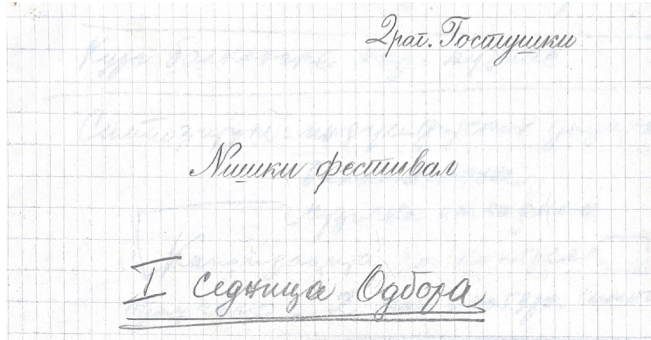 Драг. Гостушки
Нишки фестивал
I седница Одбора